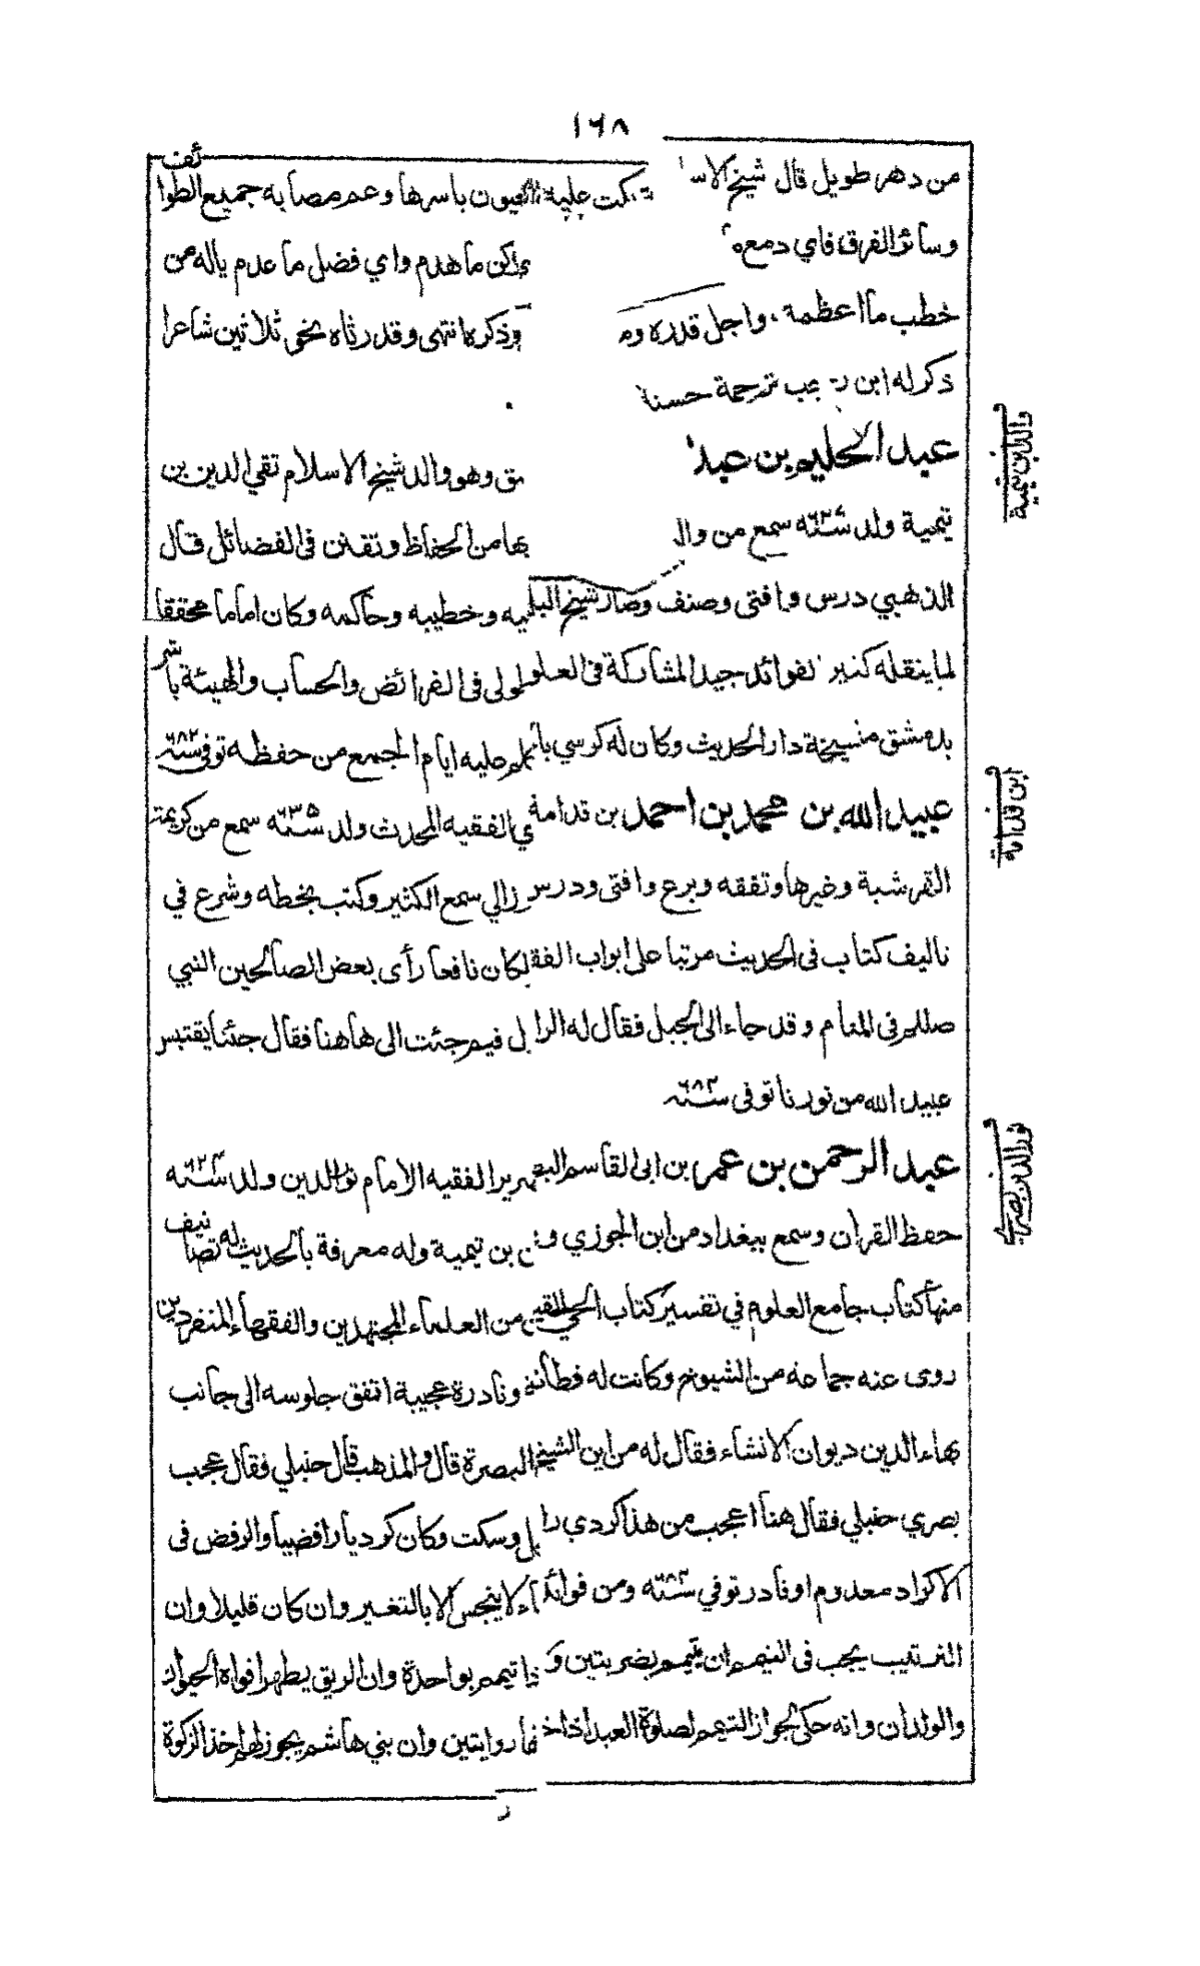 ١٦٨
من دهر طويل قال شيخ الاسا بكت عليه العيون باسرها وعم مصابه جميع الطوائف
وسائر الفرق فاي دمعه ركن ما هدم واي فضل ما عدم ياله من
خطب ما اعظمه، واجل قدره وذكره انتهى وقد رثاه نحو ثلاثين شاعرا
ذكر له ابن رجب ترجمة حسنة
عبد الحليم بن عبد وهو والد شيخ الاسلام تقي الدين بن
تيمية ولد سنة ٦٢٧ سمع من وال بها من الحفاظ وتفنن في الفضائل قال
الذهبي درس وافتى وصنف وصار شيخ البلد وخطيبه وحاكمه وكان اماما محققا
لما ينقله كثير الفوائد جيد المشاركة في العلوم في الفرائض والحساب والهيئة باشر
بدمشق مشيخة دار الحديث وكان له كرسي يتكلم عليه ايام الجمع من حفظه توفي سنة ٦٨٢
عبيد الله بن محمد بن احمد بن قدامة الفقيه المحدث ولد سنة ٦٣٥ سمع من كريمة
القرشية وغيرها وتفقه وبرع وافتى ودرس سمع الكثير وكتب بخطه وشرع في
تاليف كتاب في الحديث مرتبا على ابواب الفقه كان نافعا رأى بعض الصالحين النبي
صللم في المنام وقد جاء الى الجبل فقال له الرا فيم جئت الى هاهنا فقال جئنا يقتبس
عبيد الله من نورنا توفي سنة ٦٨٣
عبد الرحمن بن عمر بن ابي القاسم البصري الضرير الفقيه الامام نور الدين ولد سنة ٦٢٤
حفظ القرآن وسمع ببغداد من ابن الجوزي و بن تيمية وله معرفة بالحديث له تصانيف
منها كتاب جامع العلوم في تفسير كتاب الحي القيوم من العلماء المجتهدين والفقهاء المنفردين
روى عنه جماعة من الشيوخ وكانت له فطانة ونادرة عجيبة اتفق جلوسه الى جانب
بهاء الدين ديوان الانشاء فقال له من اين الشيخ البصرة قال والمذهب قال حنبلي فقال عجب
بصري حنبلي فقال هنا اعجب من هذا كردي را وسكت وكان كرديا رافضيا والرفض في
الاكراد معدوم او نادر توفي سنة ٦٨٤ ومن فوائد الماء لا ينجس الا بالتغير وان كان قليلا وان
الترتيب يجب في التيمم ان تيمم بضربتين و تيمم بواحدة وان الريق يطهر افواه الحيوان
والولدان وانه حكى الجواز التيمم لصلوة العيد اذا خ روايتين وان بني هاشم يجوز لهم اخذ الزكوة
والد ابن تيمية
ابن قدامة
نور الدين بصري